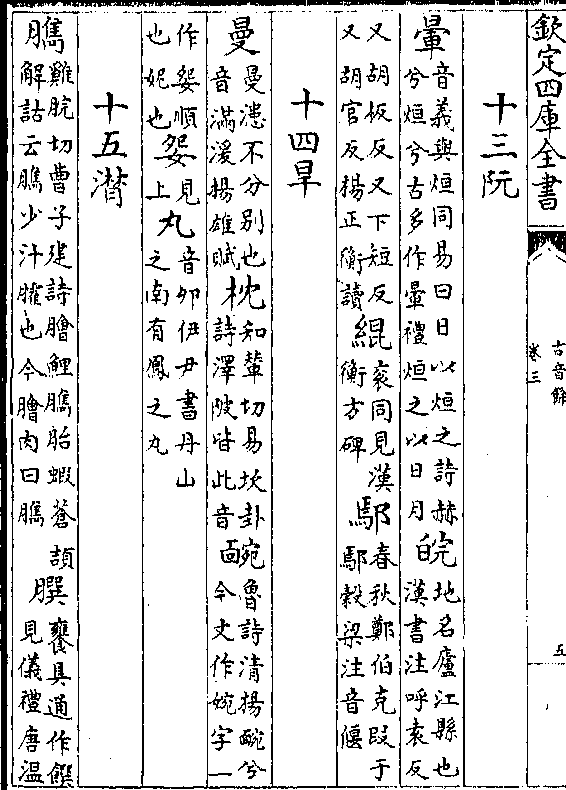 欽定四庫全書
古音餘
卷三
五
十三阮
暈音義與烜同易曰日以烜之詩赫
兮烜兮古多作暈禮烜之以日月皖地名廬江縣也
漢書注呼袁反
又胡板反又下短反
又胡官反楊正衡讀緄衮同見漢
衡方碑鄢春秋鄭伯克段于
鄢穀梁注音偃
十四旱
曼曼漶不分別也
音滿漫揚雄賦枕知輦切易坎卦
詩澤陂皆此音䩊魯詩清揚畹兮
今文作婉字一
作㛄順
也妮也㛄見
上丸音卵伊尹書丹山
之南有鳳之丸
十五潸
臇雞脘切曹子建詩膾鯉臇胎蝦蒼頡
解詁云臇少汁臛也今膾肉曰臇䐣饔具通作饌
見儀禮唐溫